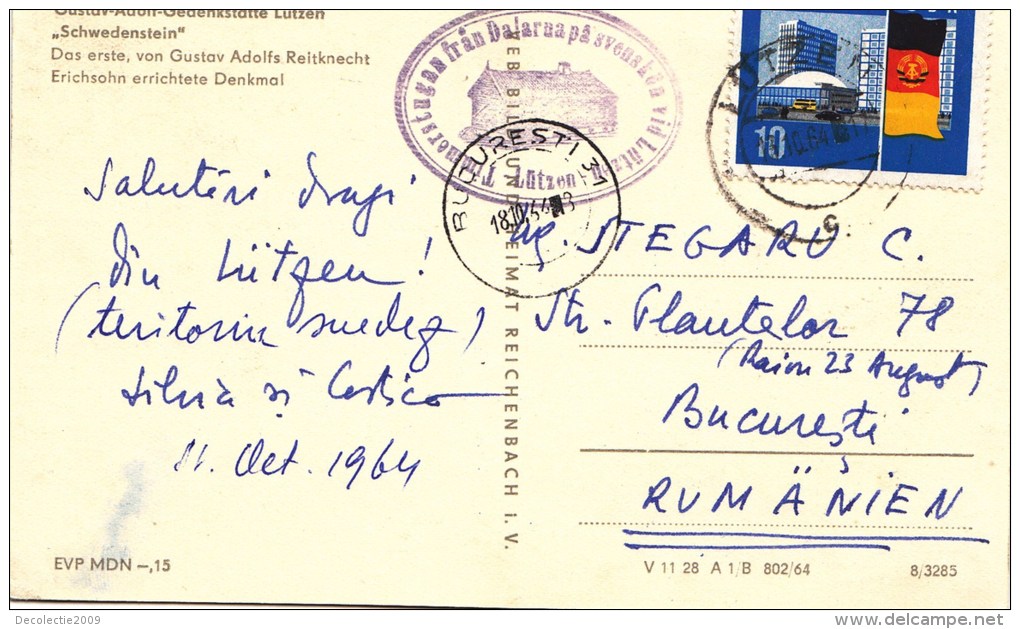 Gustav-Adolf-Gedenkstätte Lützen
„Schwedenstein"
Das erste, von Gustav Adolfs Reitknecht
Erichsohn errichtete Denkmal
Timmerstugan från Dalarna på svensk ön vid Lützen
Lützen
BUCUREȘTI 31
18.10.64
LÜTZEN
10.64
10
Salutări dragi
din Lützen!
(teritoriu suedez)
Silvia și Costică
11. Oct. 1964
VEB BILD UND HEIMAT REICHENBACH i. V.
STEGARU C.
Str. Plantelor 78
(Raion 23 August)
București
RUMÄNIEN
EVP MDN –,15
V 11 28 A 1/B 802/64
8/3285
Decolectie2009
delcampe.net